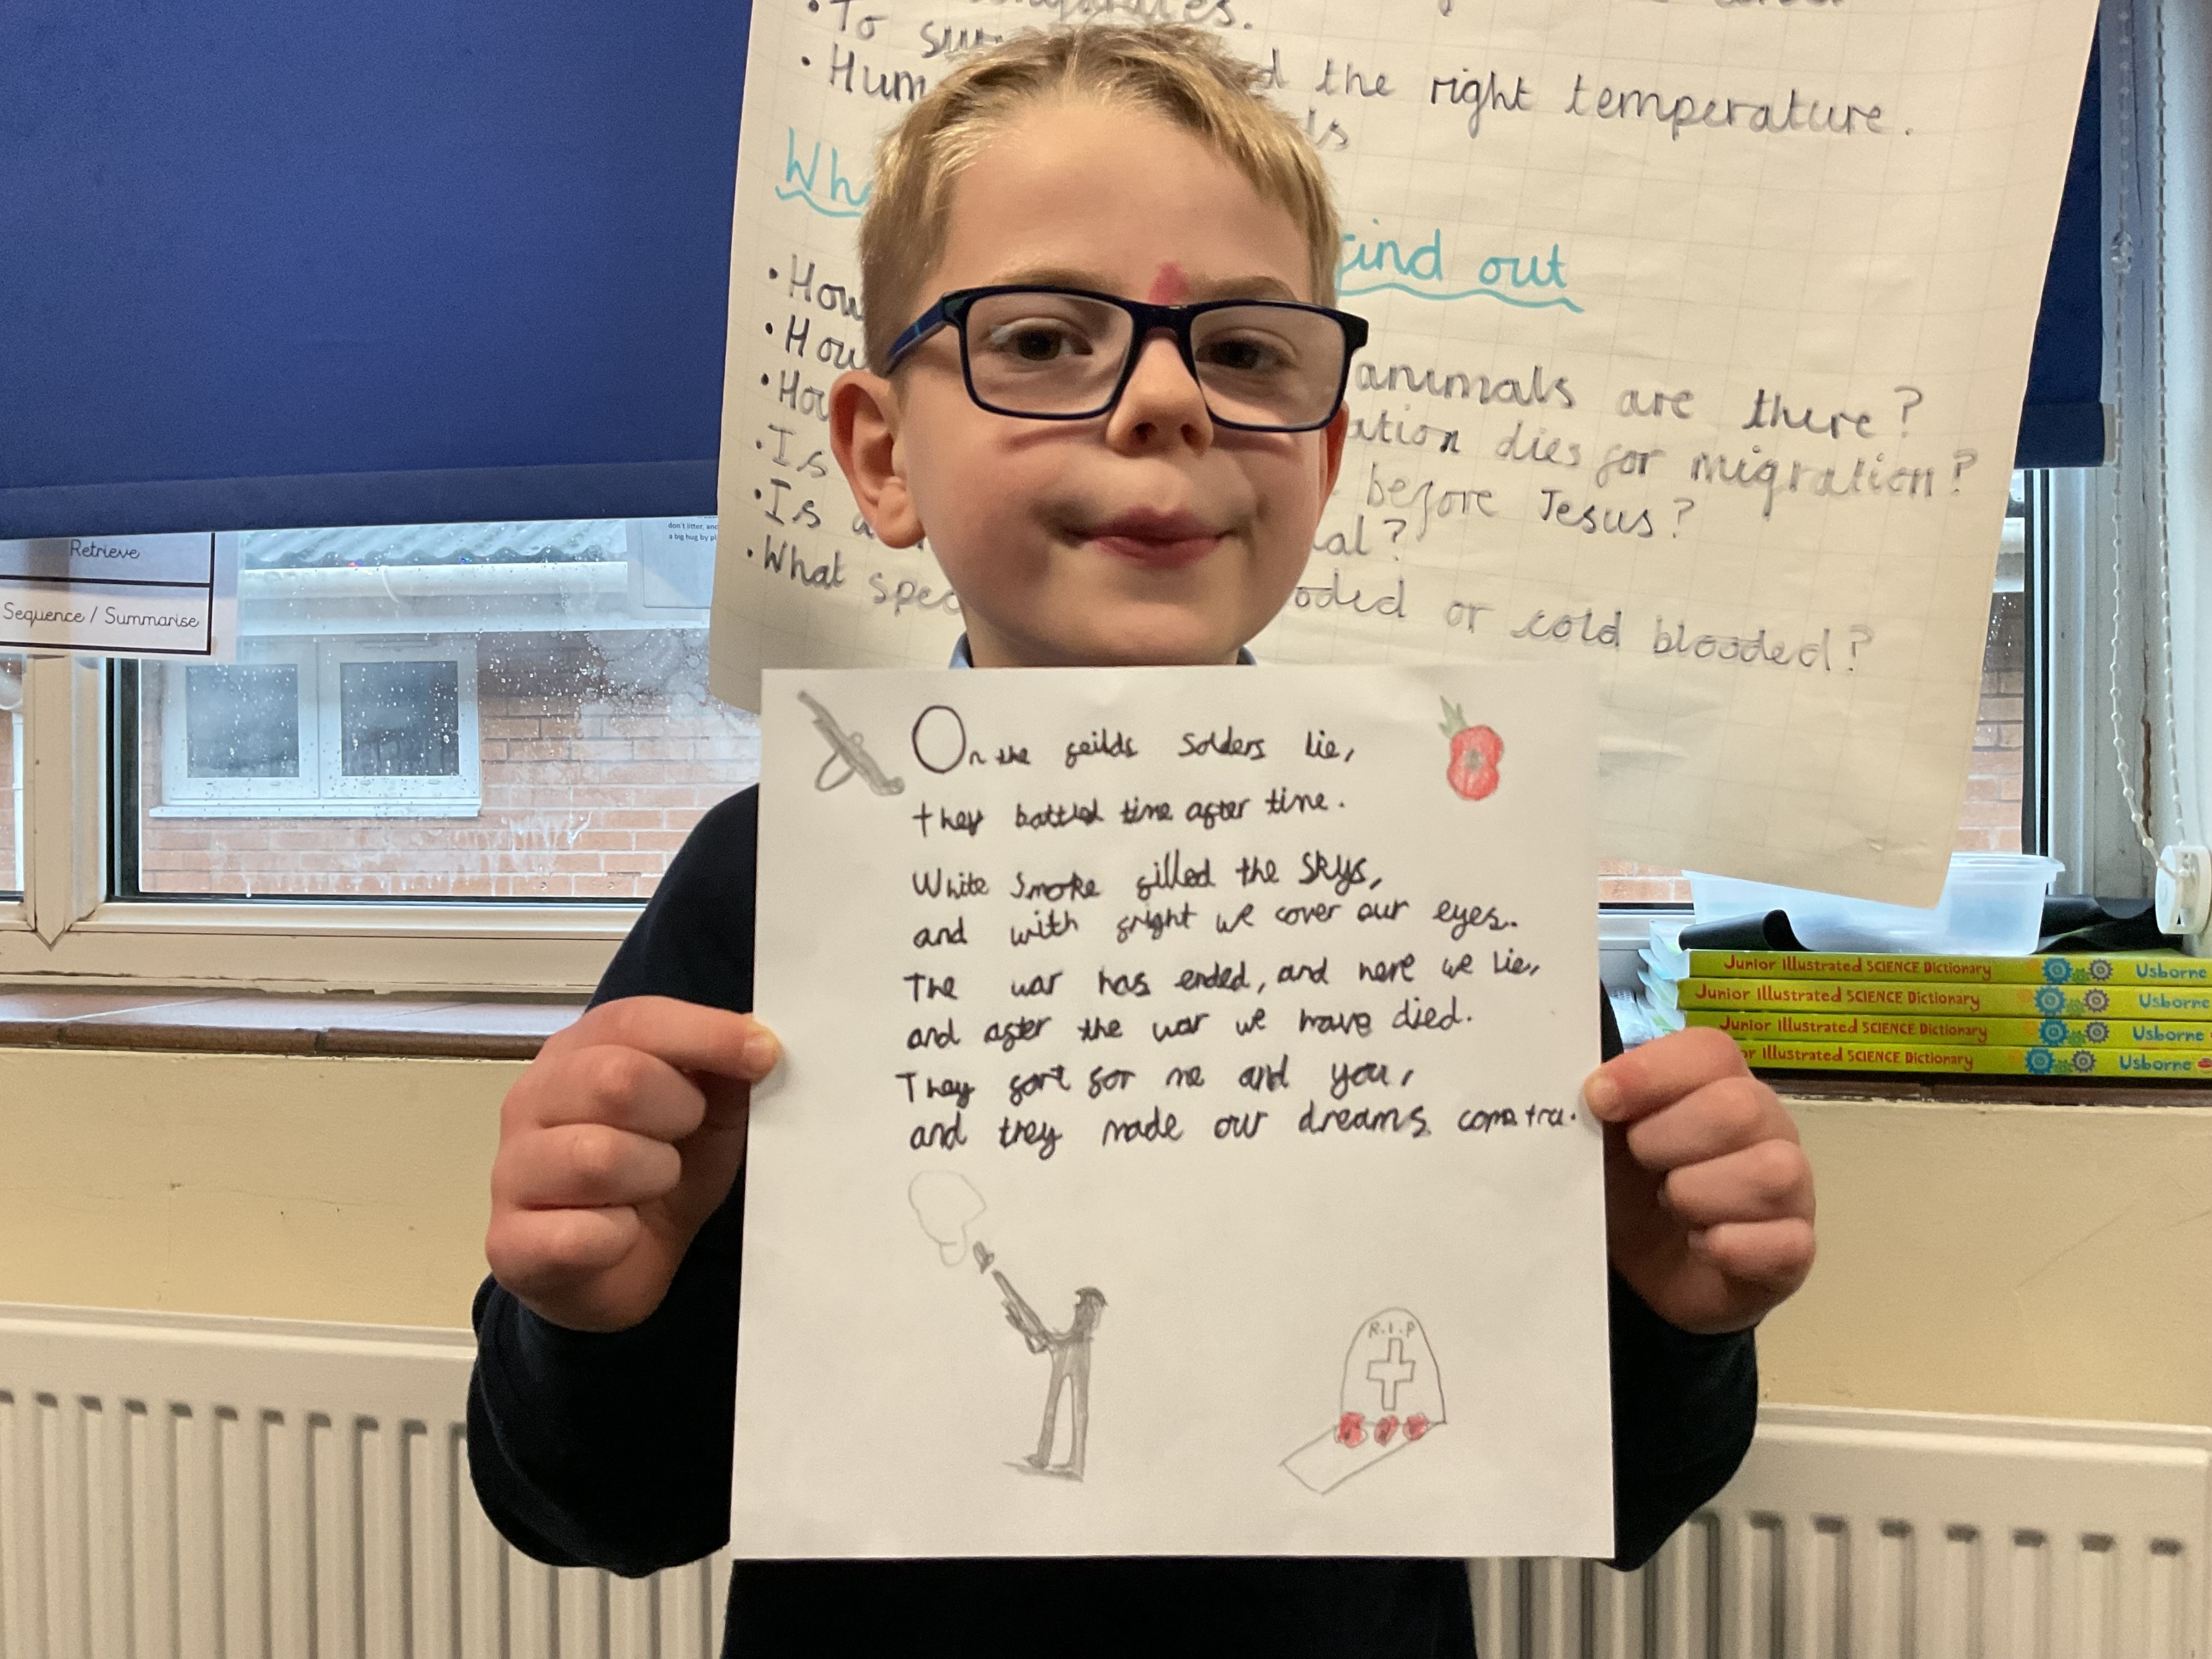 To
Hum d the right temperature.
ls
find out
How
How animals are there?
How ation dies for migration?
Is before Jesus?
Is a al?
What spec ooded or cold blooded?
Retrieve
Sequence / Summarise
don't litter, and
a big hug by pl
On the feilds Solders lie,
they battled time after time.
White Smoke filled the SKys,
and with fright we cover our eyes.
The war has ended, and here we lie,
and after the war we have died.
They fort for me and you,
and they made our dreams come tru.
R.I.P
Junior Illustrated SCIENCE Dictionary Usborne
Junior Illustrated SCIENCE Dictionary Usborne
Junior Illustrated SCIENCE Dictionary Usborne
or Illustrated SCIENCE Dictionary Usborne